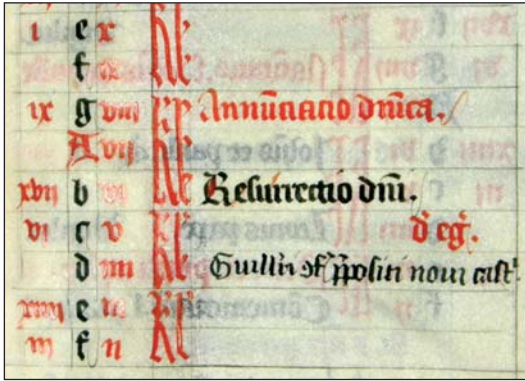 i e x kl
f ix kl
ix g viij kl Annūciacio dn̄ica.
A vij kl
xvij b vj kl Resurrectio dn̄i.
vj c v kl d' eg̓.
d iiij kl Guill'i ꝯf' p̄positi noui cast'
xiiij e iij kl
iij f ij kl